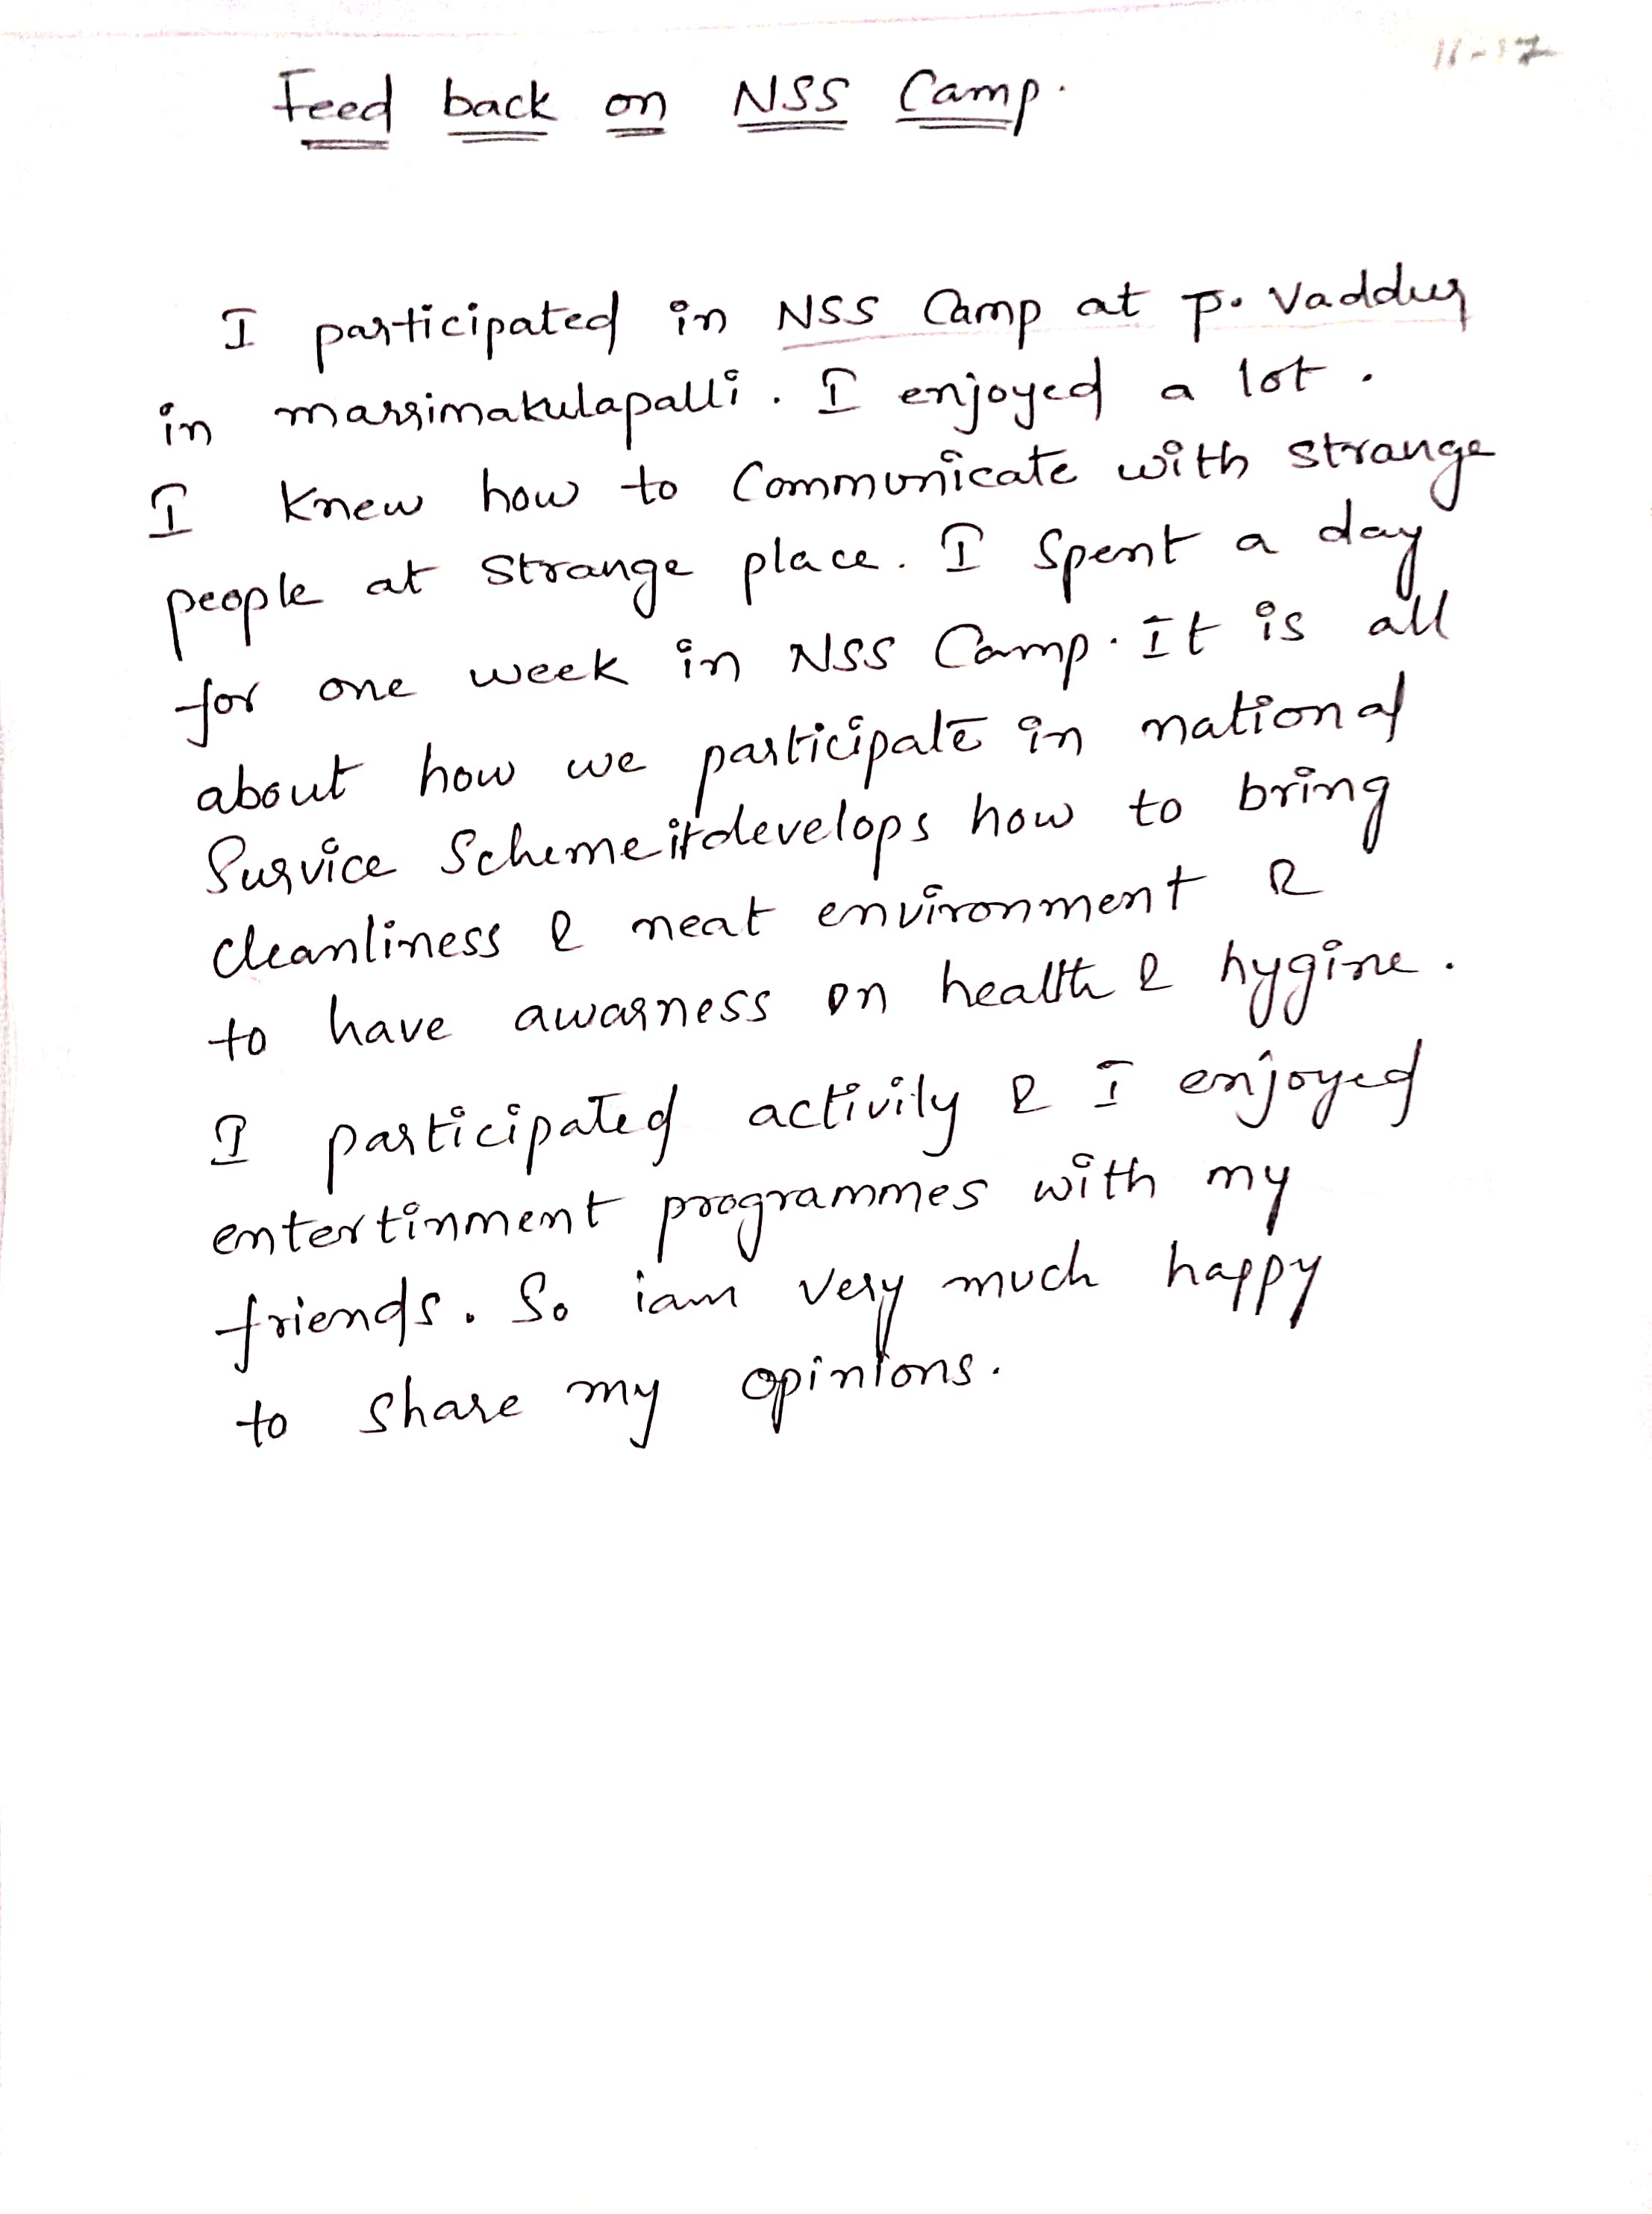 11-17
Feed back on NSS Camp.
I participated in NSS Camp at p. Vaddur
in marrimakulapalli. I enjoyed a lot.
I knew how to Communicate with strange
people at strange place. I spent a day
for one week in NSS Camp. It is all
about how we participate in national
Survice Scheme it develops how to bring
cleanliness & neat environment &
to have awarness on health & hygine.
I participated activity & I enjoyed
entertinment programmes with my
friends. So iam very much happy
to share my opinions.